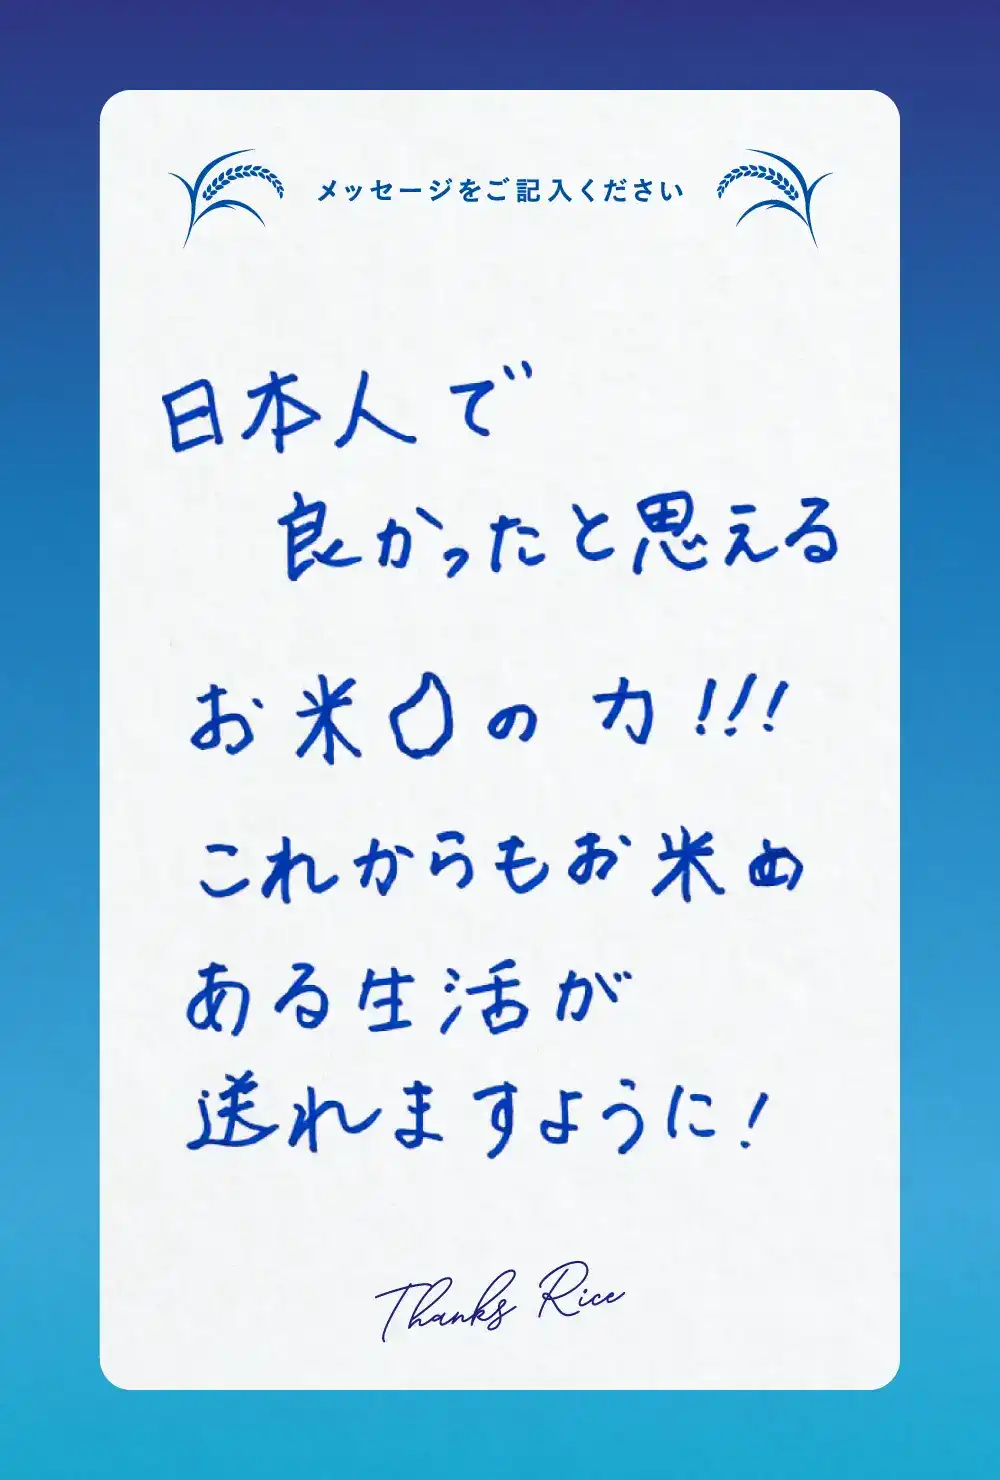 メッセージをご記入ください
日本人で
良かったと思える
お米の力!!!
これからもお米の
ある生活が
送れますように!
Thanks Rice